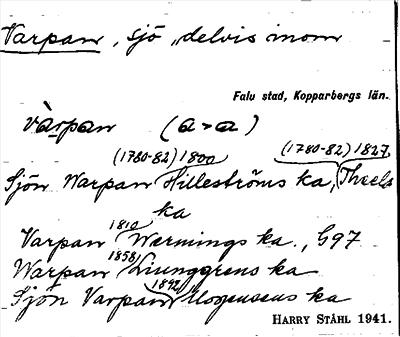 Varpan, sjö, delvis inom
Falu stad, Kopparbergs län.
vàrpan (a>a)
(1780-82) 1800 (1780-82) 1827
Sjön Warpan Hilleströms ka, Theels
ka
1810
Varpan Wermings ka., G97
1858
Warpan Ljunggrens ka
1892
Sjön Varpan Mogensens ka
HARRY STÅHL 1941.